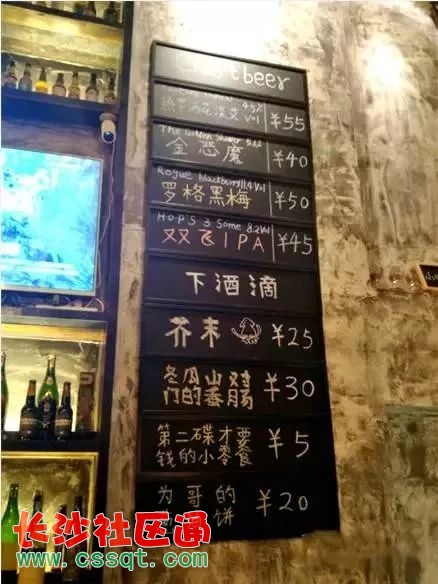 Craft beer
4.5%
酒花淡艾 Vol ¥55
The Golden Shower
金恶魔 ¥40
Rogue blackberry 11.4Vol
罗格黑梅 ¥50
HOP'S 3 Some 8.2Vol
双飞IPA ¥45
下酒滴
芥末 ¥25
冬瓜山对
门的香肠 ¥30
第二碟才要
钱的小零食 ¥5
为哥的
饼 ¥20
长沙社区通
www.cssqt.com